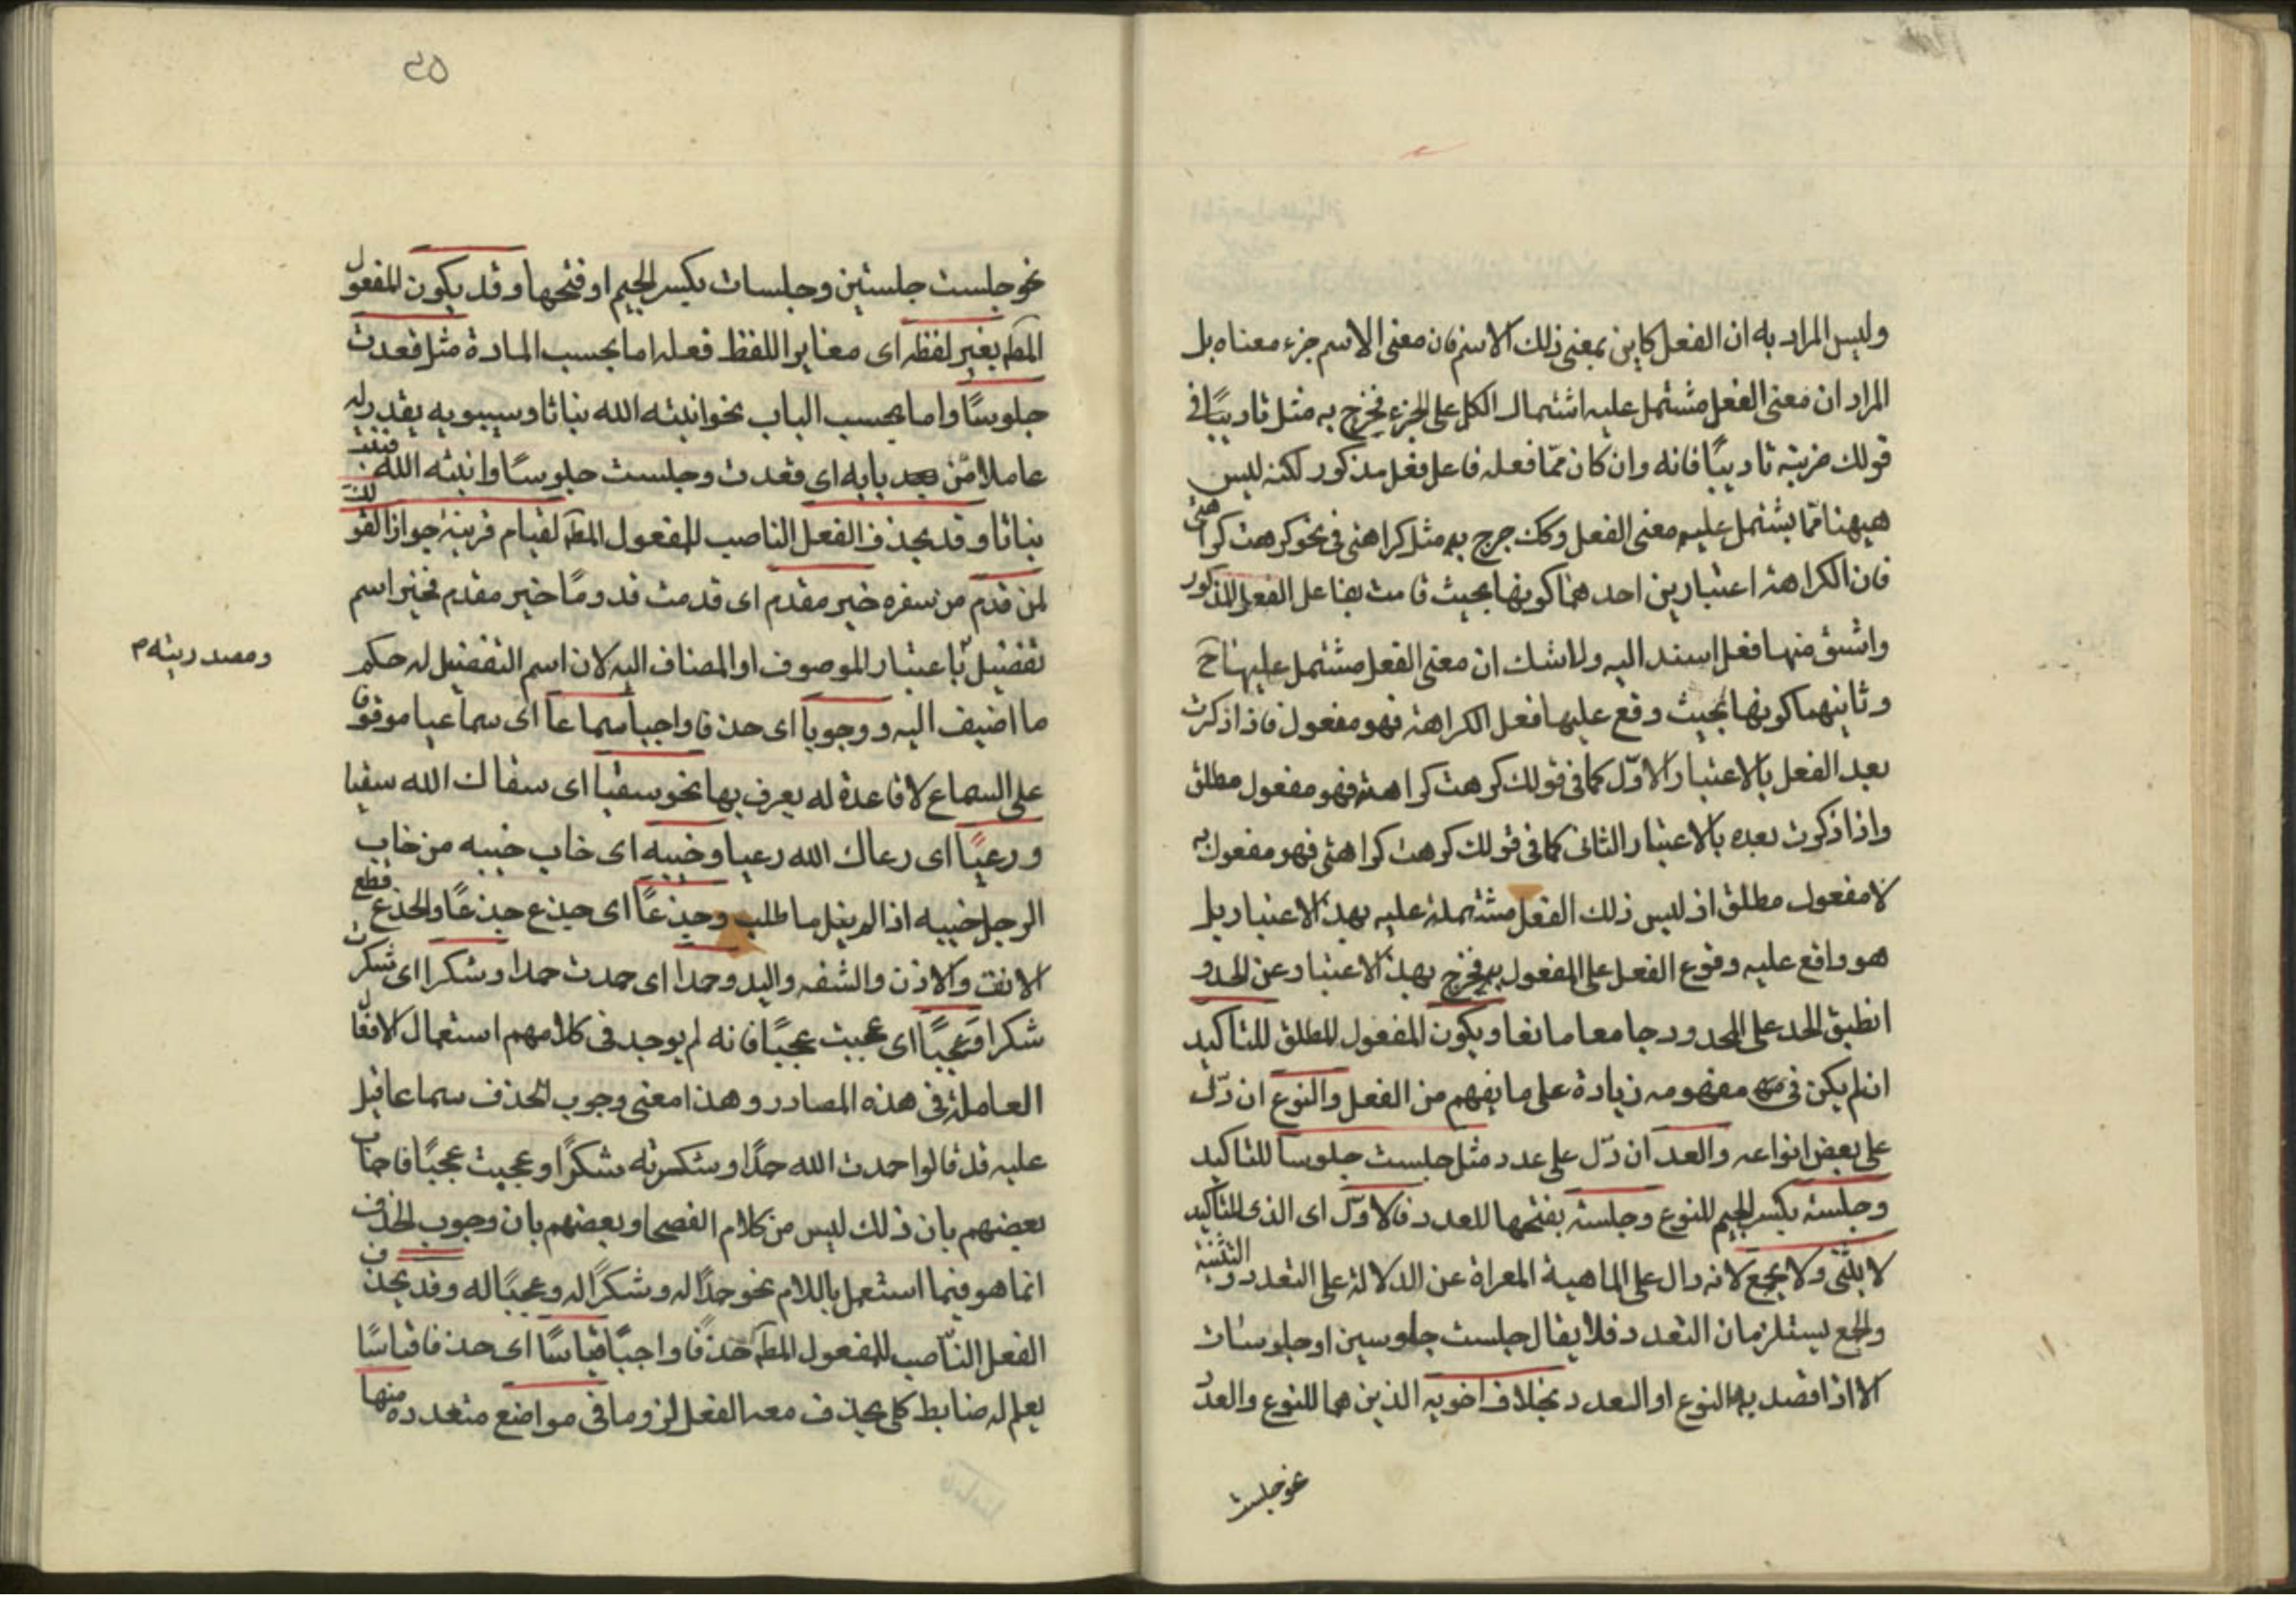 وليس المراد به ان الفعل كاين بمعنى ذلك الاسم فان معنى الاسم جزء معناه بل
المراد ان معنى الفعل مشتمل عليه اشتمال الكل على الجزء فخرج به مثل تاديبًا فى
قولك ضربته تاديبًا فانه وان كان ممّا فعله فاعل فعل مذكور لكنه ليس
هيهنا ممّا يشتمل عليه معنى الفعل وكك خرج به مثل كراهتى فى نحو كرهت كراهتى
فان الكراهة اعتبارين احدهما كونها بحيث قامت بفاعل الفعل المذكور
واشتق منها فعل اسند اليه ولا شك ان معنى الفعل مشتمل عليها ح
وثانيهما كونها بحيث وقع عليها فعل الكراهة فهو مفعول فاذا ذكرت
بعد الفعل بالاعتبار الاوّل كما فى قولك كرهت كراهة فهو مفعول مطلق
واذا ذكرت بعده بالاعتبار الثانى كما فى قولك كرهت كراهتى فهو مفعول به
لا مفعول مطلق اذ ليس ذلك الفعل مشتملة عليه بهذا الاعتبار بل
هو واقع عليه وقوع الفعل على المفعول به فخرج بهذا الاعتبار عن الحد و
انطبق الحد على المحدود جامعا مانعا ويكون المفعول المطلق للتاكيد
ان لم يكن فى مفهومه زيادة على ما يفهم من الفعل والنوع ان دلّ
على بعض انواعه والعدد ان دلّ على عدد مثل جلست جلوسا للتاكيد
وجلسة بكسر الجيم للنوع وجلسة بفتحها للعدد فالاوّل اى الذى للتاكيد
لا يثنّى ولا يجمع لانه دال على الماهية المعراة عن الدلالة على التعدد والتثنية
والجمع يستلزمان التعدد فلا يقال جلست جلوسين او جلوسات
الا اذا قصد به النوع او العدد بخلاف اخويه الذين هما للنوع والعدد
نحو جلست
٢٥
نحو جلست جلستين وجلسات بكسر الجيم او فتحها وقد يكون المفعول
المط بغير لفظه اى مغايرا للفظ فعله اما بحسب المادة مثل قعدت
جلوسًا واما بحسب الباب نحو انبته الله نباتا وسيبويه يقدر له
عاملا من بابه اى قعدت وجلست جلوسًا وانبته الله فنبت
نباتا وقد يحذف الفعل الناصب للمفعول المط لقيام قرينة جوازا كقولك
لمن قدم من سفره خير مقدم اى قدمت قدومًا خير مقدم فخير اسم
تفضيل باعتبار الموصوف او المضاف اليه لان اسم التفضيل له حكم
ومصدريته م
ما اضيف اليه ووجوبا اى حذفا واجبا سماعا اى سماعيا موقوفا
على السماع لا قاعدة له يعرف بها نحو سقيا اى سقاك الله سقيا
ورعيًا اى رعاك الله رعيا وخيبة اى خاب خيبة من خاب
الرجل خيبة اذا لم ينل ما طلب وجدعًا اى جدع جدعًا والجدع قطع
الانف والاذن والشفة واليد وحمدا اى حمدت حمدا وشكرا اى شكرت
شكرا وعجبًا اى عجبت عجبًا فانه لم يوجد فى كلامهم استعمال الافعال
العاملة فى هذه المصادر وهذا معنى وجوب الحذف سماعا قيل
عليه قد قالوا حمدت الله حمدًا وشكرته شكرًا وعجبت عجبًا فاجاب
بعضهم بان ذلك ليس من كلام الفصحا وبعضهم بان وجوب الحذف
انما هو فيما استعمل باللام نحو حمدًا له وشكرًا له وعجبًا له وقد يحذف
الفعل النّاصب للمفعول المط حذفًا واجبًا قياسًا اى حذفا قياسًا
يعلم له ضابط كلى يحذف معه الفعل لزوما فى مواضع متعددة منها